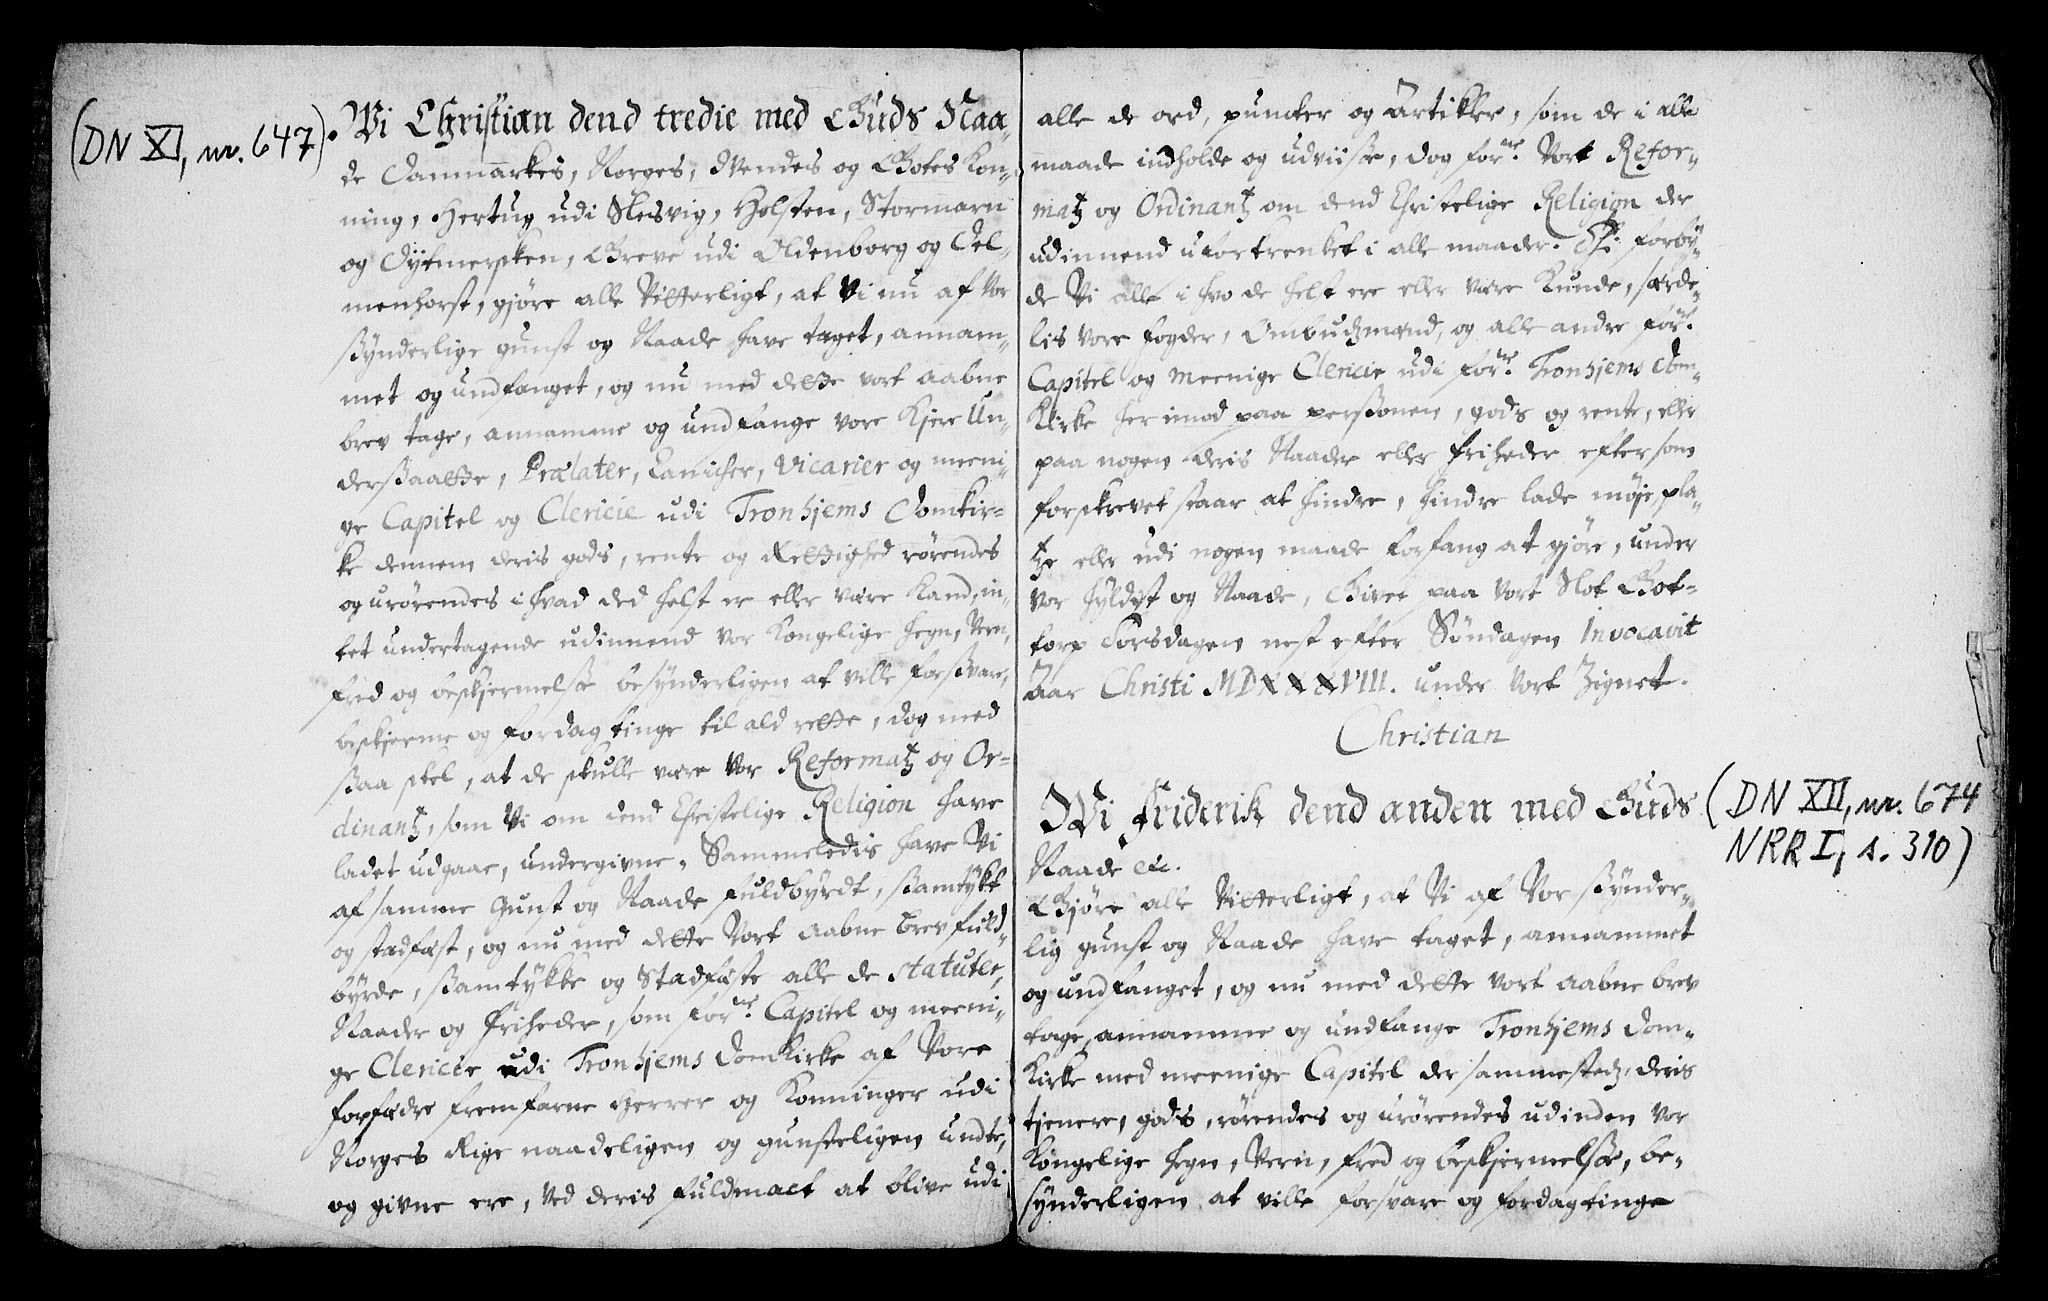 (DN XI, nr. 647)
Wi Christian dend tredie med Guds Naa-
de Danmarkes, Norges, Wendes og Gotes Kon-
ning, Hertug udi Slesvig, Holsten, Stormarn
og Dytmersken, Greve udi Oldenborg og Del-
menhorst, gjøre alle Vitterligt, at Vi nu af Vor
synderlige gunst og Naade have taget, annam-
met og undfanget, og nu med dette vort aabne
brev tage, annamme og undfange vore Kjere Un-
dersaatte, Prælater, Canicher, Vicarier og meeni-
ge Capitel og Clericie udi Tronhjems Domkir-
ke dennem deris gods, rente og Rettighed rørendes
og urørendes i hvad ded helst er eller være Kand, in-
tet undertagende udinnend vor Kongelige hegn, Vern,
fred og beskjermelse besynderligen at ville forsvare,
beskjerme og fordagtinge til ald rette, dog med
saa skel, at de skulle være Vor Reformatz og Or-
dinantz, som Vi om dend Christelige Religion have
ladet udgaae, undergivne. Sammeledis have Vi
af samme Gunst og Naade fuldbyrdt, samtykt
og stadfæst, og nu med dette Vort aabne brev fuld-
byrde, samtykke og Stadfæste alle de statuter,
Naader og Friheder, som forne Capitel og meeni-
ge Clericie udi Tronhjems DomKirke af Vore
forfædre fremfarne Herrer og Konninger udi
Norges Rige naadeligen og gunsteligen undte,
og givne ere, ved deris fuldmact at blive udi
alle de ord, puncter og Artikler, som de i alle
maade indholde og udviise, dog forne Vort Refor-
matz og Ordinantz om dend Christelige Religion der
udinnend ufortrenket i alle maader. Thi forby-
de Vi alle i hvo de helst ere eller være Kunde, særde-
lis Vore fogder, Ombudzmænd, og alle andre forne
Capitel og meenige Clericie udi forne Tronhjems Dom-
Kirke her imod paa personen, gods og rente, eller
paa nogen deris Naader eller friheder eftersom
forskrevet staar at hindre, hindre lade møje, pla-
tze eller udi nogen maade forfang at gjøre, under
vor hyldest og Naade, Givet paa Vort Slot Got-
torp Torsdagen nest efter Søndagen Invocavit
Aar Christi MDXXXVIII. under Vort Zignet.
Christian
Wi Friderik dend anden med Guds
Naade etc.
(DN XII, nr. 674
NRR I, s. 310)
Gjøre alle Vitterligt, at Vi af Vor synder-
lig gunst og Naade have taget, annammet
og undfanget, og nu med dette vort aabne brev
tage, annamme og undfange Tronhjems Dom-
Kirke med meenige Capitel der sammestedz, deris
tjenere, gods, rørendes og urørendes udinden Vor
Kongelige hegn, Vern, fred og beskjermelse, be-
synderligen at ville forsvare og fordagtinge